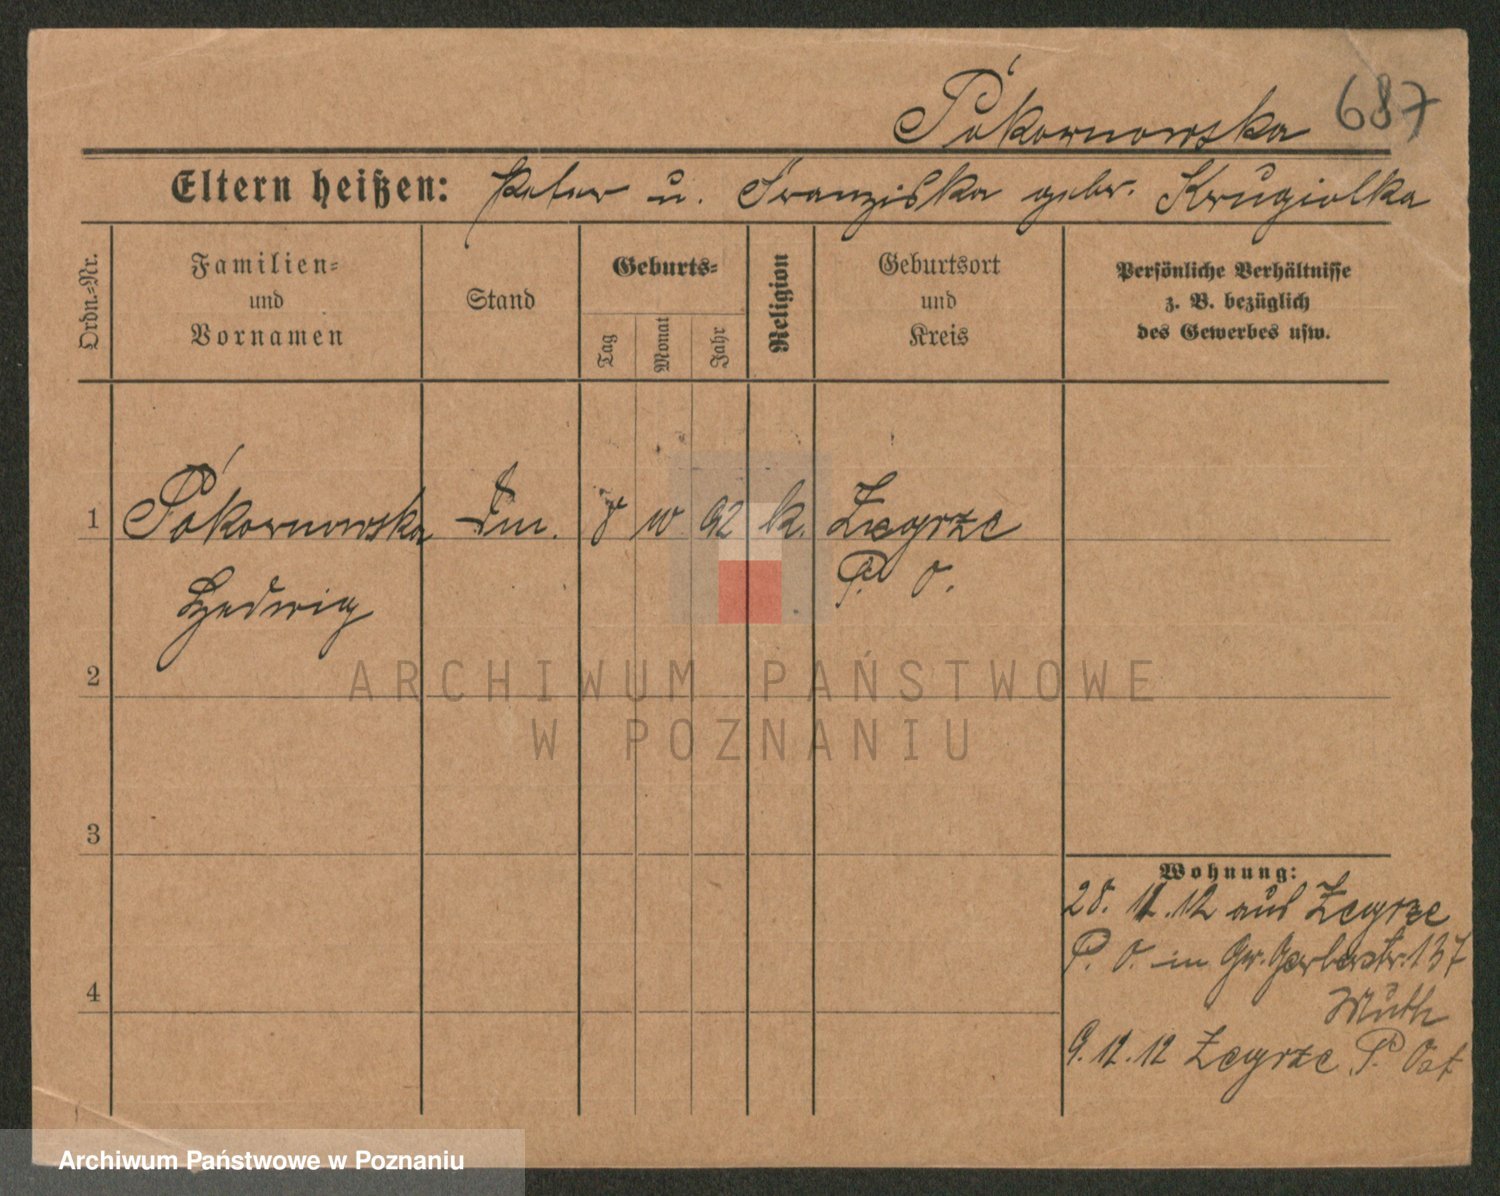 Pokornowska 687
Eltern heißen: Peter u. Franziska gebr. Krugiolka
Ordn.-Nr.
Familien-
und
Vornamen
Stand
Geburts-
Tag
Monat
Jahr
Religion
Geburtsort
und
Kreis
Persönliche Verhältnisse
z. B. bezüglich
des Gewerbes usw.
1 Pokornowska 8 92 k. Zegrze
P. O.
Hedwig
2
3
4
Wohnung:
28. 11. 12 aus Zegrze
P. O. in Gr. Gerberstr. 137
Muth
9. 12. 12 Zegrze P. Ost
ARCHIWUM PAŃSTWOWE
W POZNANIU
Archiwum Państwowe w Poznaniu